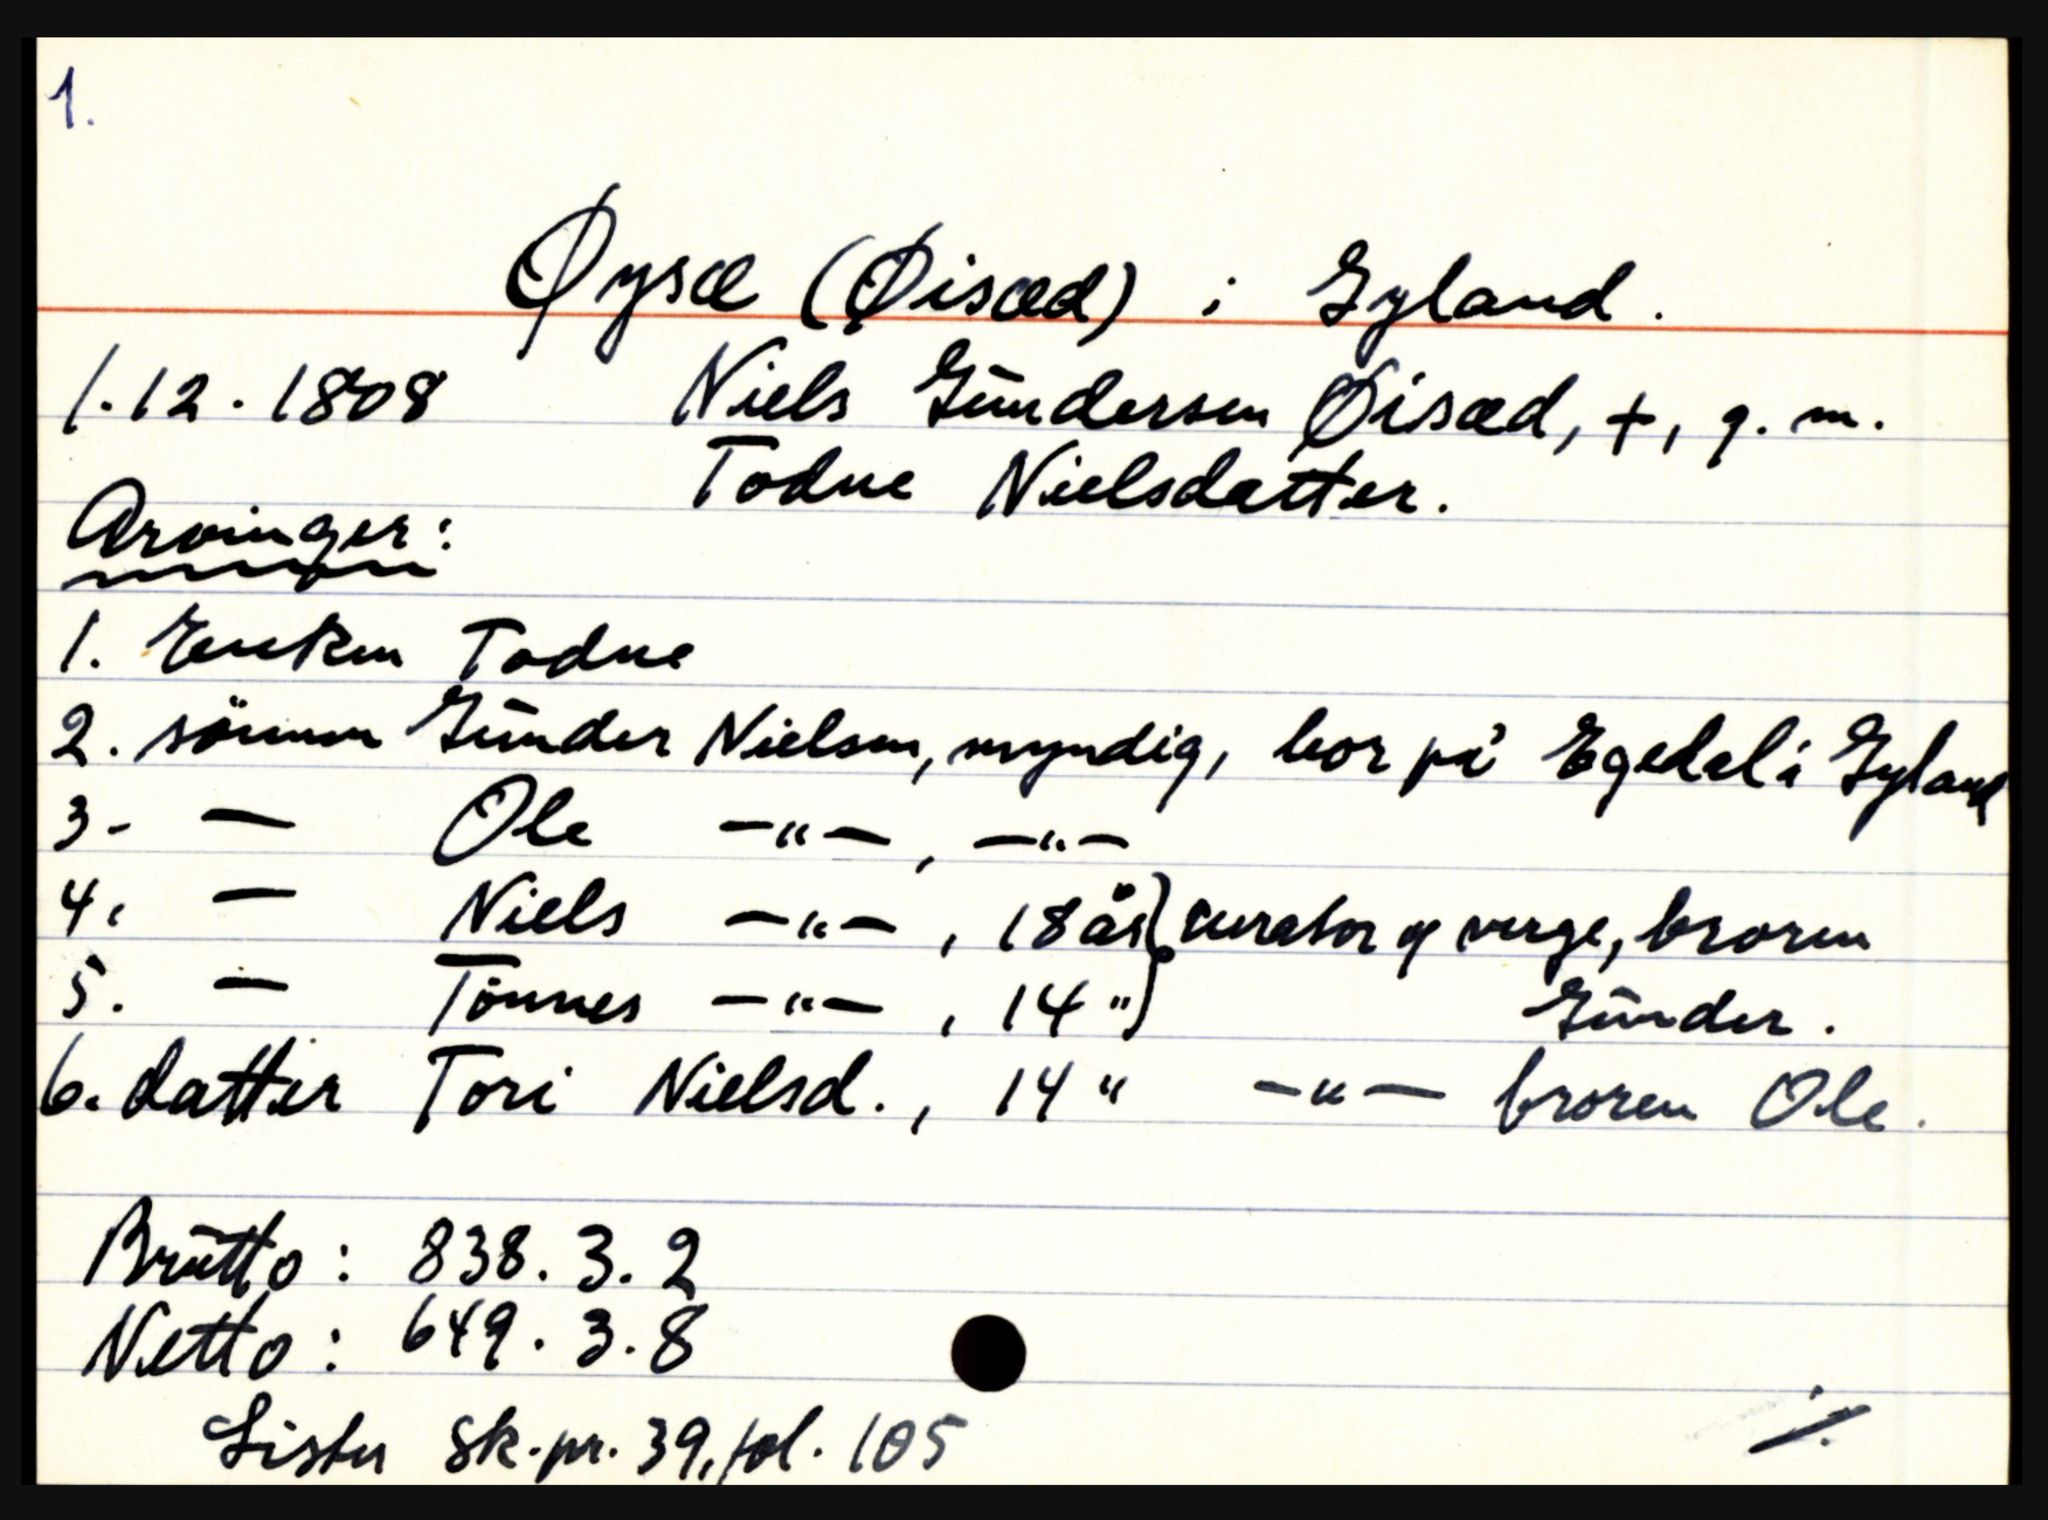 1.
Øysæ (Øisæd) i Gyland.
1.12.1808 Niels Gundersen Øisæd, +, g. m.
Todne Nielsdatter.
Arvinger:
1. Enken Todne
2. sönnen Gunder Nielsen, myndig, bor på Egedal i Gyland
3. — Ole —"—, —"—
4. — Niels —"—, 18 år } curator og verge, broren
5. — Tönnes —"—, 14 " } Gunder.
6. datter Tori Nielsd., 14 " —"— broren Ole.
Brutto: 838.3.2
Netto: 649.3.8
Lister sk.pr. 39, fol. 105